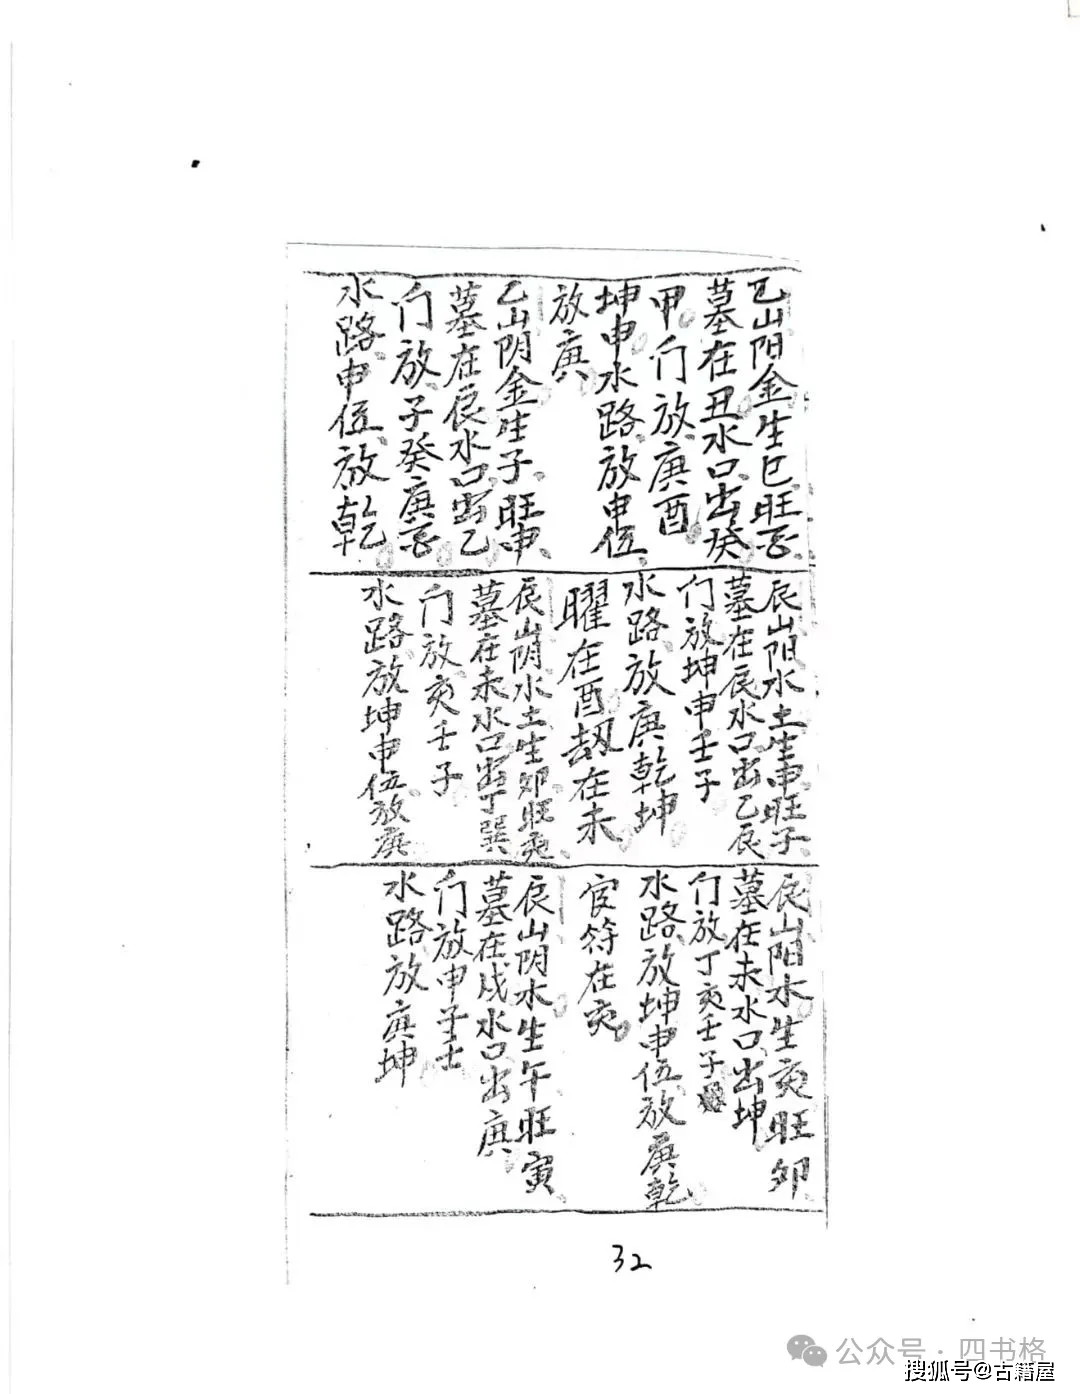 乙山阳金生巳旺酉
墓在丑水口出癸
甲门放庚酉
坤申水路放申位
放庚
乙山阴金生子旺申
墓在辰水口出乙
门放子癸庚酉
水路申位放乾
辰山阳水土生申旺子
墓在辰水口出乙辰
门放坤申壬子
水路放庚乾坤
曜在酉劫在未
辰山阴水土生卯旺亥
墓在未水口出丁巽
门放亥壬子
水路放坤申位放庚
辰山阳木生亥旺卯
墓在未水口出坤
门放丁亥壬子
水路放坤申位放庚乾
官符在亥
辰山阴木生午旺寅
墓在戌水口出庚
门放申子壬
水路放庚坤
32
公众号·四书格
搜狐号@古籍屋